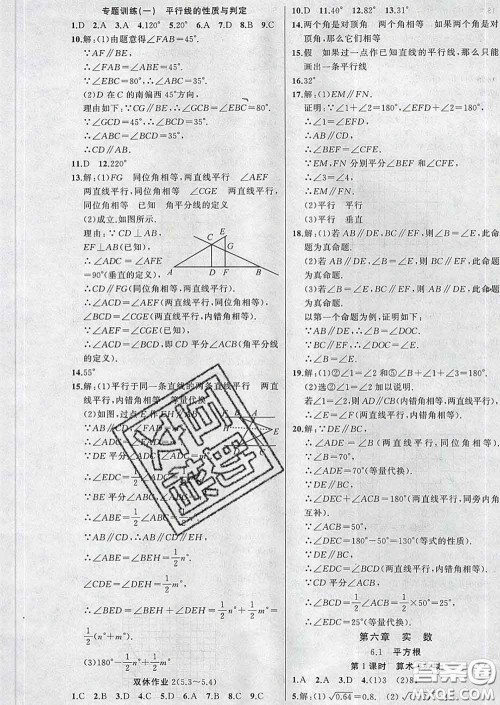 专题训练(一) 平行线的性质与判定
1.D 2.A 3.A 4.120° 5.20° 6.B 7.C 8.B 9.C
10.解:(1)由题意得∠FAB=45°.
∵AF∥BE,
∴∠ABE=∠FAB=45°.
∵∠EBC=80°,∴∠ABC=35°.
(2)D在C的南偏西45°方向,
理由如下:∵CG∥BE,∴∠GCB=∠EBC=80°.
∵∠BCD=35°,
∴∠GCD=45°,∵∠ABC=35°,
∴∠ABC=∠BCD=35°,
∴CD∥AB.
11.D 12.220°
13.解:(1)FG 同位角相等 两直线平行 ∠AEF 两直线平行,同位角相等 ∠CGE 两直线平行,同位角相等 已知 角平分线的定义
(2)成立.如图所示.
理由:∵CD⊥AB,
EF⊥AB(已知),
∴∠ADC=∠AFE
=90°(垂直的定义)
∴CD∥FG(同位角相等,两直线平行)
∴∠ACD=∠AEF(两直线平行,同位角相等),
∠BCD=∠CGE(两直线平行,内错角相等).
∴∠ACD=∠BCD,即CD平分∠ACB(角平分线的定义).
14.55°
15.解:(1)平行于同一条直线的两条直线平行 两直线平行,内错角相等 等量代换
∴∠ABE=∠BEH=1/2n°
∠CDE=∠DEH=1/2m°
∴∠BED=∠BEH+∠DEH=1/2n°+1/2m°=
1/2(n+m)°.
(3)180°-1/2n°+1/2m°
双休作业2(5.3~5.4)
1.C 2.A 3.C 4.D 5.B 6.B 7.D 8.C 9.B
10.D 11.40° 12.82° 13.31°
14.两个角是对顶角 两个角相等 如果两个角是对顶角,那么它们相等
15.假 如果过一点作已知直线的平行线,那么只能画出一条平行线
16.32°
17.解:(1)EM∥FN.
证明:∵∠1=∠2=180°,∠EFD+∠2=180°,
∴∠1=∠EFD,∴AB∥CD,
∴∠BEF=∠CFE.
∵EM,FN分别平分∠BEF和∠CFE,
∴∠3=∠4,
∴EM∥FN.
(2)平行 平行
(3)平行 垂直
18.解:(1)若AB∥DE,BC∥EF,则∠B=∠E,此命题为真命题.
(2)若AB∥DE,∠B=∠E,则BC∥EF,此命题为真命题.
(3)若∠B=∠E,BC∥EF,则AB∥DE,此命题为真命题.
以第一个命题为例,证明如下:
∵AB∥DE,∴∠B=∠DOC.
∵BC∥EF,∴∠DOC=∠E,
∴∠B=∠E.
19.解:(1)①∠1=∠2和⑤∠1=∠B均可.
(2)选②∠1=∠2加以说明.
∵∠1=∠2,∴AD∥BC(内错角相等,两直线平行).
20.解:∵DE∥BC,
∴∠ADE=∠B(两直线平行,同位角相等).
∵∠B=70°,
∴∠ADE=70°(等量代换).
∵DE∥BC,
∴∠DEC+∠ACB=180°(两直线平行,同旁内角互补).
∵∠ACB=50°,
∴∠DEC=180°-50°=130°(等式的性质).
∵DE∥BC,
∴∠EDC=∠BCD(两直线平行,内错角相等).
∵CD平分∠ACB,
∴∠BCD=1/2∠ACB=1/2×50°=25°,
∴∠EDC=25°(等量代换).
第六章 实数
6.1 平方根
第1课时 算术
1.C 2.B 3.A
5.解:(1)√0.64=0.8.
答案圈
MXQE.COM